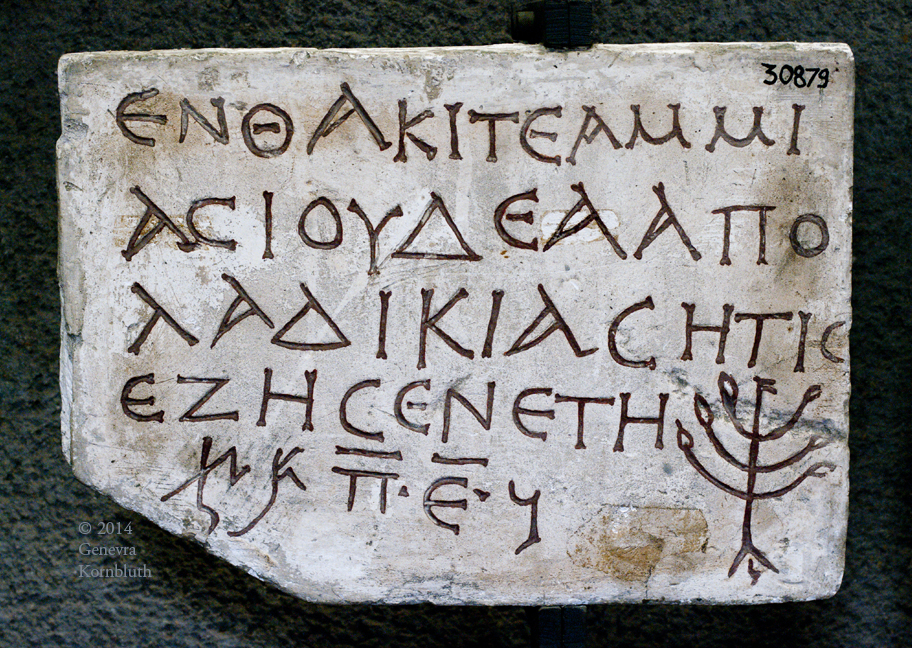 30879
ΕΝΘΑΚΙΤΕΑΜΜΙ
ΑϹΙΟΥΔΕΑΑΠΟ
ΛΑΔΙΚΙΑϹΗΤΙϹ
ΕΖΗϹΕΝΕΤΗ
Π̅·Ε̅·
© 2014
Genevra
Kornbluth